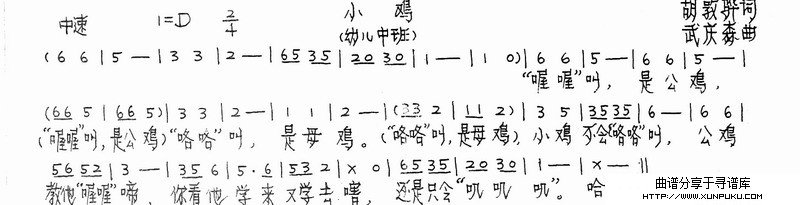 小 鸡
中速 1=D 2/4 胡敦骅词
(幼儿中班) 武庆森曲
(6 6 | 5 — | 3 3 | 2 — | 65 35 | 20 30 | 1 — | 1 0) | 6 6 | 5 — | 6 6 | 5 — |
“喔 喔”叫， 是 公 鸡，
(66 5 | 66 5) | 3 3 | 2 — | 1 1 | 2 — | (33 2 | 11 2) | 3 5 | 35 35 | 6 — | 6 6 |
(“喔喔”叫，是公鸡)“咯咯”叫， 是 母 鸡。(“咯咯”叫，是母鸡) 小鸡 不会“咯咯”叫， 公鸡
56 52 | 3 — | 35 6 | 5·6 | 53 2 | x 0 | 65 35 | 20 30 | 1 — | x — ‖
教他“喔喔”啼， 你看他 学来 又学去 嘻， 还是只会“叽 叽 叽”。 哈
曲谱分享于寻谱库
HTTP://WWW.XUNPUKU.COM